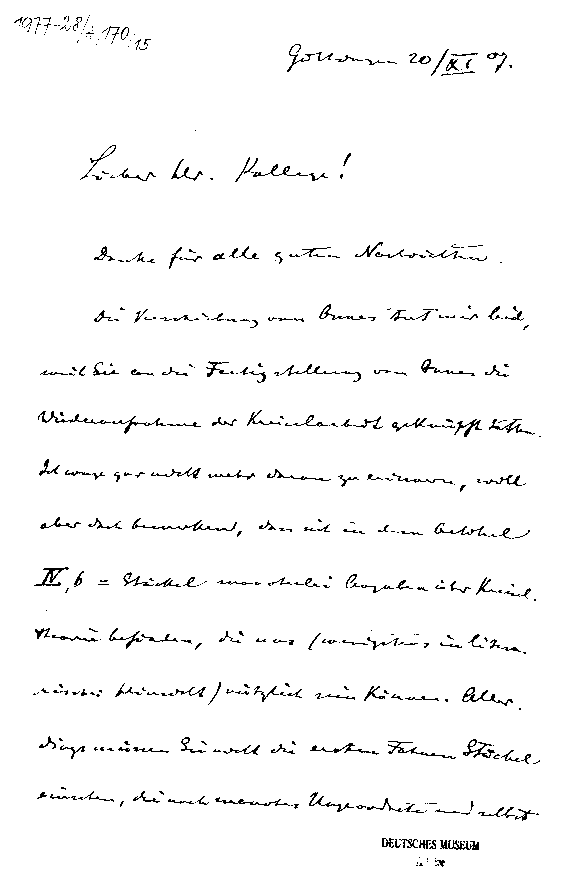 1977-28/A,170/15
Göttingen 20/XI 07.
Lieber Hr. Kollege!
Danke für alle guten Nachrichten.
Die Verschiebung von Onnes tut mir leid,
weil Sie an die Fertigstellung von Onnes die
Wiederaufnahme der Kreiselarbeit geknüpft hatten.
Ich wage gar nicht mehr daran zu erinnern, will
aber doch bemerken, dass sich in dem Artikel
IV, 6 = Stäckel mancherlei Angaben über Kreisel-
theorie befinden, die uns (wenigstens in litera-
rischer Hinsicht) nützlich sein können. Aller-
dings müssen Sie nicht die ersten Fahnen Stäckel
einsehen, die noch mancherlei Ungeordnetes und selbst
DEUTSCHES MUSEUM